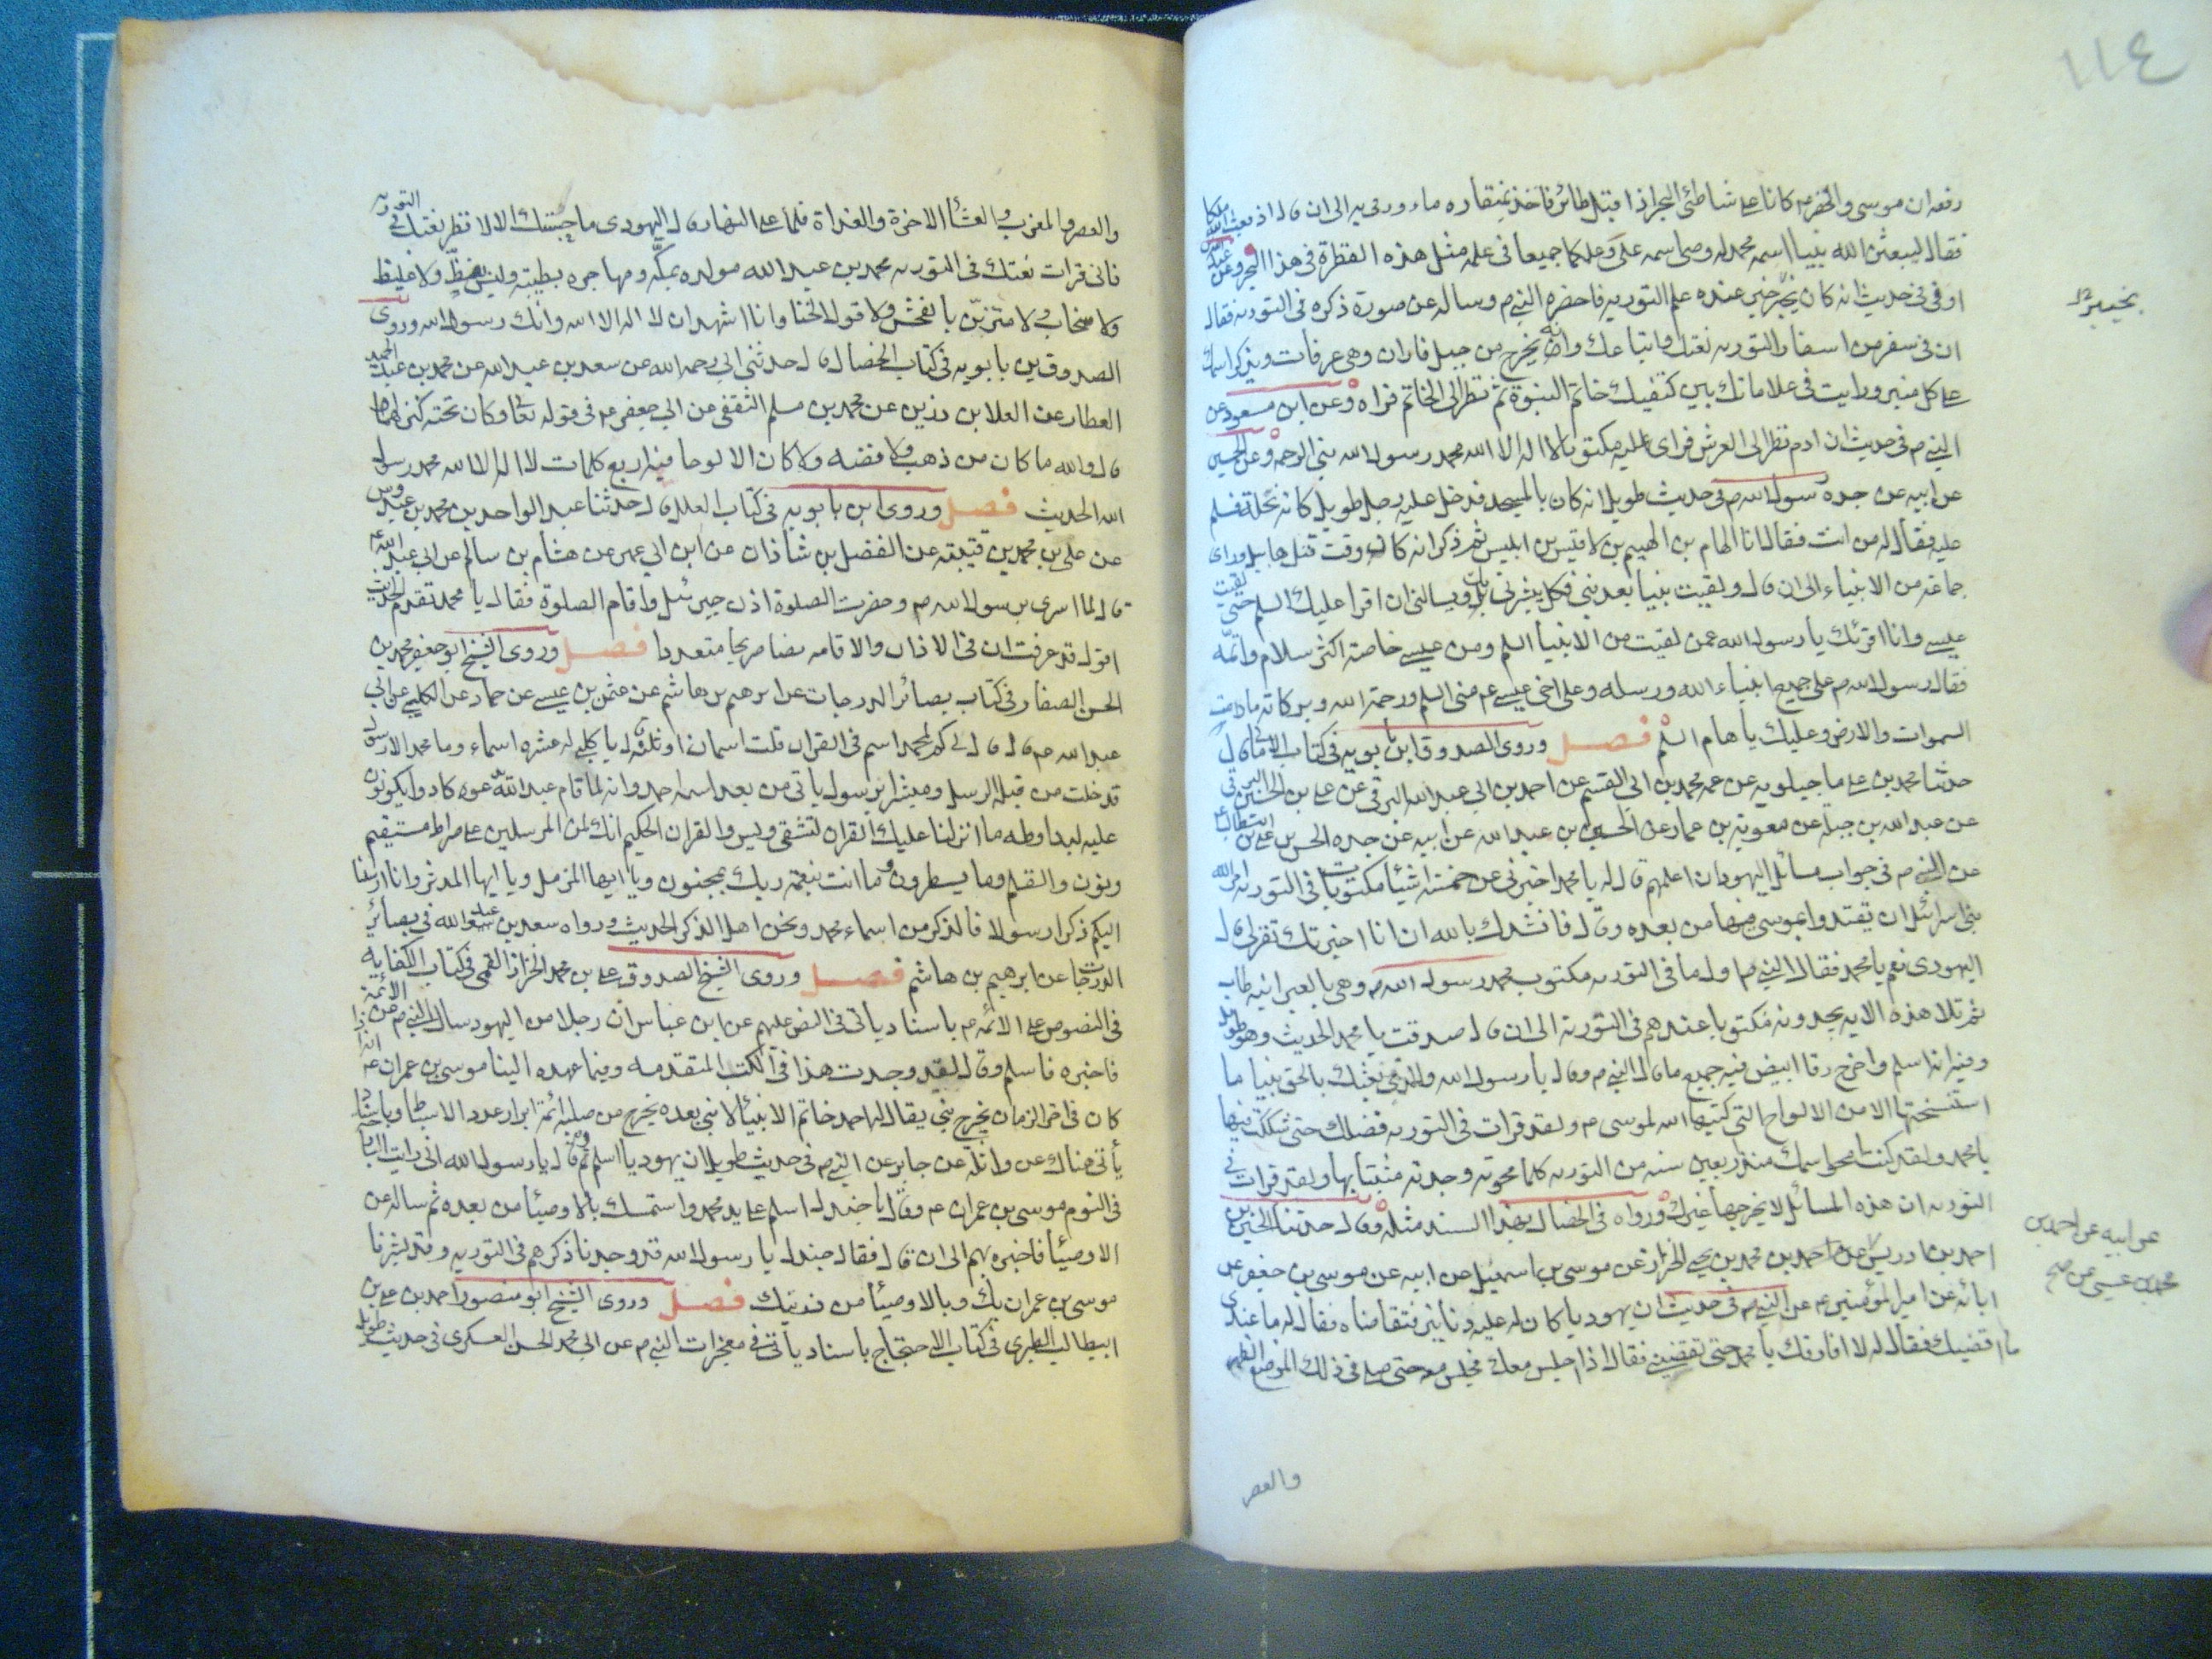 ١١٤
رفعه ان موسى والخضرم كانا على شاطئ البحر اذا قبل طائر فاخذ بمنقاره ماء ورقى به الى ان قال اذ بعث الله ملكا
فقال ليبعثن الله نبيا اسمه محمد له وصى اسمه على وعلمكما جميعا فى علمه مثل هذه القطرة فى هذا البحر وعن عبد الله بن
اوفى فى حديث انه كان بخيبر حبر عنده علم التورية فاحضره النبى م وساله عن صورة ذكره فى التورية فقال
بخيبر
ان فى سفر من اسفار التورية نعتك واتباعك وانه يخرج من جبل فاران وهى عرفات ويذكر اسمك
على كل منبر ورايت فى علاماتك بين كتفيك خاتم النبوة ثم نظر الى الخاتم فراه وعن ابن مسعود عن
النبى م فى حديث ان ادم نظر الى العرش فراى عليه مكتوبا لا اله الا الله محمد رسول الله نبى الرحمة وعن الحسين
عن ابيه عن جده رسول الله م فى حديث طويل انه كان بالمسجد فدخل عليه رجل طويل كانه نخلة فسلم
عليه فقال له من انت فقال انا الهام بن الهيم بن لاقيس بن ابليس ثم ذكر انه كان وقت قتل هابيل وراى
جماعة من الانبياء الى ان قال ولقيت نبيا بعد نبى فكل يبشرنى بك ويسالنى ان اقرا عليك السلم حتى لقيت
عيسى وانا اقرئك يا رسول الله عمن لقيت من الانبيا السلم ومن عيسى خاصة اكثر سلام واتمه
فقال رسول الله م على جميع انبياء الله ورسله وعلى اخى عيسى ع منى السلم ورحمة الله وبركاته ما دامت
السموات والارض وعليك يا هام السلم فصل وروى الصدوق ابن بابويه فى كتاب الامالى قال
حدثنا محمد بن على ماجيلويه عن عمه محمد بن ابى القسم عن احمد بن ابى عبد الله البرقى عن على بن الحسين البرقى
عن عبد الله بن جبلة عن معوية بن عمار عن الحسن بن عبد الله عن ابيه عن جده الحسن بن على بن ابيطالب ع
عن النبى م فى جواب مسائل اليهود ان اعلمهم قال له يا محمد اخبرنى عن خمسة اشياء مكتوبات فى التورية امر الله
بنى اسرائيل ان يقتدوا بموسى فيها من بعده قال فانشدك بالله ان انا اخبرتك تقر لى قال
اليهودى نعم يا محمد فقال النبى م اول ما فى التورية مكتوب محمد رسول الله م وهى بالعبرانيه طاب
ثم تلا هذه الايه يجدونه مكتوبا عندهم فى التورية الى ان قال صدقت يا محمد الحديث وهو طويل
وفيه انه اسلم واخرج رقا ابيض فيه جميع ما قال النبى م وقال يا رسول الله والذى بعثك بالحق نبيا ما
استنسختها الا من الالواح التى كتبها الله لموسى م ولقد قرات فى التورية فضلك حتى شككت فيها
يا محمد ولقد كنت امحو اسمك منذ اربعين سنه من التورية كلما محوته وجدته مثبتا بها ولقد قرات فى
التورية ان هذه المسائل لا يخرجها غيرك ورواه فى الخصال بهذا السند مثله وقال حدثنا الحسين بن
احمد بن ادريس عن احمد بن محمد بن يحيى الخزاز عن موسى بن اسمعيل عن ابيه عن موسى بن جعفر عن
عن ابيه عن احمد بن
محمد بن عيسى عن صح
ابائه عن امير المؤمنين ع عن النبى م فى حديث ان يهوديا كان له عليه دنانير فتقاضاه فقال له ما عندى
ما اقضيك فقال له لا افارقك يا محمد حتى تقضينى فقال اذا اجلس معك فجلس معه حتى صلى فى ذلك الموضع الظهر
والعصر
والعصر والمغرب والعشاء الاخرة والغداة فلما علا النهار قال اليهودى ما حبستك الا لانظر نعتك فى التورية
فانى قرات نعتك فى التورية محمد بن عبد الله مولده بمكة ومهاجره بطيبة وليس بفظ ولا غليظ
ولا سخاب ولا متزين بالفحش ولا قول الخنا وانا اشهد ان لا اله الا الله وانك رسول الله وروى
الصدوق بن بابويه فى كتاب الخصال قال حدثنى ابى رحمه الله عن سعد بن عبد الله عن محمد بن عبد الحميد
العطار عن العلا بن رزين عن محمد بن مسلم الثقفى عن ابى جعفر ع فى قوله تعالى وكان تحته كنز لهما
قال والله ما كان من ذهب ولا فضه ولا كان الا لوحا فيه اربع كلمات لا اله الا الله محمد رسول
الله الحديث فصل وروى ابن بابويه فى كتاب العلل قال حدثنا عبد الواحد بن محمد بن عبدوس
عن على بن محمد بن قتيبة عن الفضل بن شاذان عن ابن ابى عمير عن هشام بن سالم عن ابى عبد الله ع
قال لما اسرى برسول الله م وحضرت الصلوة اذن جبرئيل واقام الصلوة فقال يا محمد تقدم الحديث
اقول قد عرفت ان فى الاذان والاقامه نصا صريحا متعددا فصل وروى الشيخ ابو جعفر محمد بن
الحسن الصفار فى كتاب بصائر الدرجات عن ابرهيم بن هاشم عن عثمن بن عيسى عن حماد عن الكلبى عن ابى
عبد الله ع قال قال لى كم لمحمد اسم فى القران قلت اسمان او ثلثة قال يا كلبى له عشره اسماء وما محمد الا رسول
قد خلت من قبله الرسل ومبشرا برسول ياتى من بعد اسمه احمد وانه لما قام عبد الله يدعوه كادوا يكونون
عليه لبدا وطه ما انزلنا عليك القران لتشقى ويس والقران الحكيم انك لمن المرسلين على صراط مستقيم
ونون والقلم وما يسطرون وما انت بنعمة ربك بمجنون ويا ايها المزمل ويا ايها المدثر وانا ارسلنا
اليكم ذكرا رسولا فالذكر من اسماء محمد ونحن اهل الذكر الحديث ورواه سعد بن عبد الله فى بصائر
الدرجات عن ابرهيم بن هاشم فصل وروى الشيخ الصدوق على بن محمد الخزاز القمى فى كتاب الكفايه
فى النصوص على الائمة ع باسناد ياتى فى النص عليهم عن ابن عباس ان رجلا من اليهود سال النبى م عن الائمة
فاخبره فاسلم وقال لقد وجدت هذا فى الكتب المتقدمه وفيما عهده الينا موسى بن عمران ع انه اذا
كان فى اخر الزمان يخرج نبى يقال له احمد خاتم الانبياء لا نبى بعده يخرج من صلبه ائمة ابرار عدد الاسباط وباسناد
يأتى هناك عن واثلة عن جابر عن النبى م فى حديث طويل ان يهوديا اسلم ثم قال يا رسول الله انى رايت البارحة
فى النوم موسى بن عمران ع وقال يا جندل اسلم على يد محمد واستمسك بالاوصياء من بعده ثم ساله عن
الاوصياء فاخبره بهم الى ان قال فقال جندل يا رسول الله قد وجدنا ذكرهم فى التورية وقد بشرنا
موسى بن عمران بك وبالاوصياء من ذريتك فصل وروى الشيخ ابو منصور احمد بن على بن
ابيطالب الطبرسى فى كتاب الاحتجاج باسناد ياتى فى معجزات النبى م عن ابى محمد الحسن العسكرى فى حديث طويل